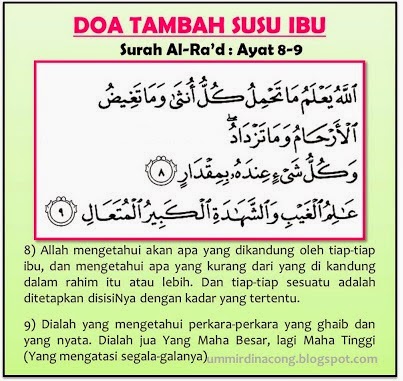 DOA TAMBAH SUSU IBU
Surah Al-Ra'd : Ayat 8-9
اللَّهُ يَعْلَمُ مَا تَحْمِلُ كُلُّ أُنثَىٰ وَمَا تَغِيضُ
الْأَرْحَامُ وَمَا تَزْدَادُ ۖ
وَكُلُّ شَيْءٍ عِندَهُ بِمِقْدَارٍ ۝٨
عَالِمُ الْغَيْبِ وَالشَّهَادَةِ الْكَبِيرُ الْمُتَعَالِ ۝٩
8) Allah mengetahui akan apa yang dikandung oleh tiap-tiap
ibu, dan mengetahui apa yang kurang dari yang di kandung
dalam rahim itu atau lebih. Dan tiap-tiap sesuatu adalah
ditetapkan disisiNya dengan kadar yang tertentu.
9) Dialah yang mengetahui perkara-perkara yang ghaib dan
yang nyata. Dialah jua Yang Maha Besar, lagi Maha Tinggi
(Yang mengatasi segala-galanya)
ummirdinacong.blogspot.com